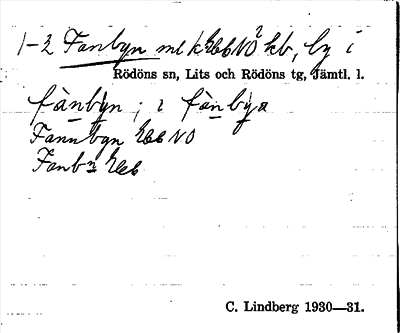 1-2 Fanbyn ml kheb NO² kb, by i
Rödöns sn, Lits och Rödöns tg, Jämtl. l.
fànby̆n ; i fànby̆a
Fannbyn Heb NO
Fanbn Heb
C. Lindberg 1930—31.